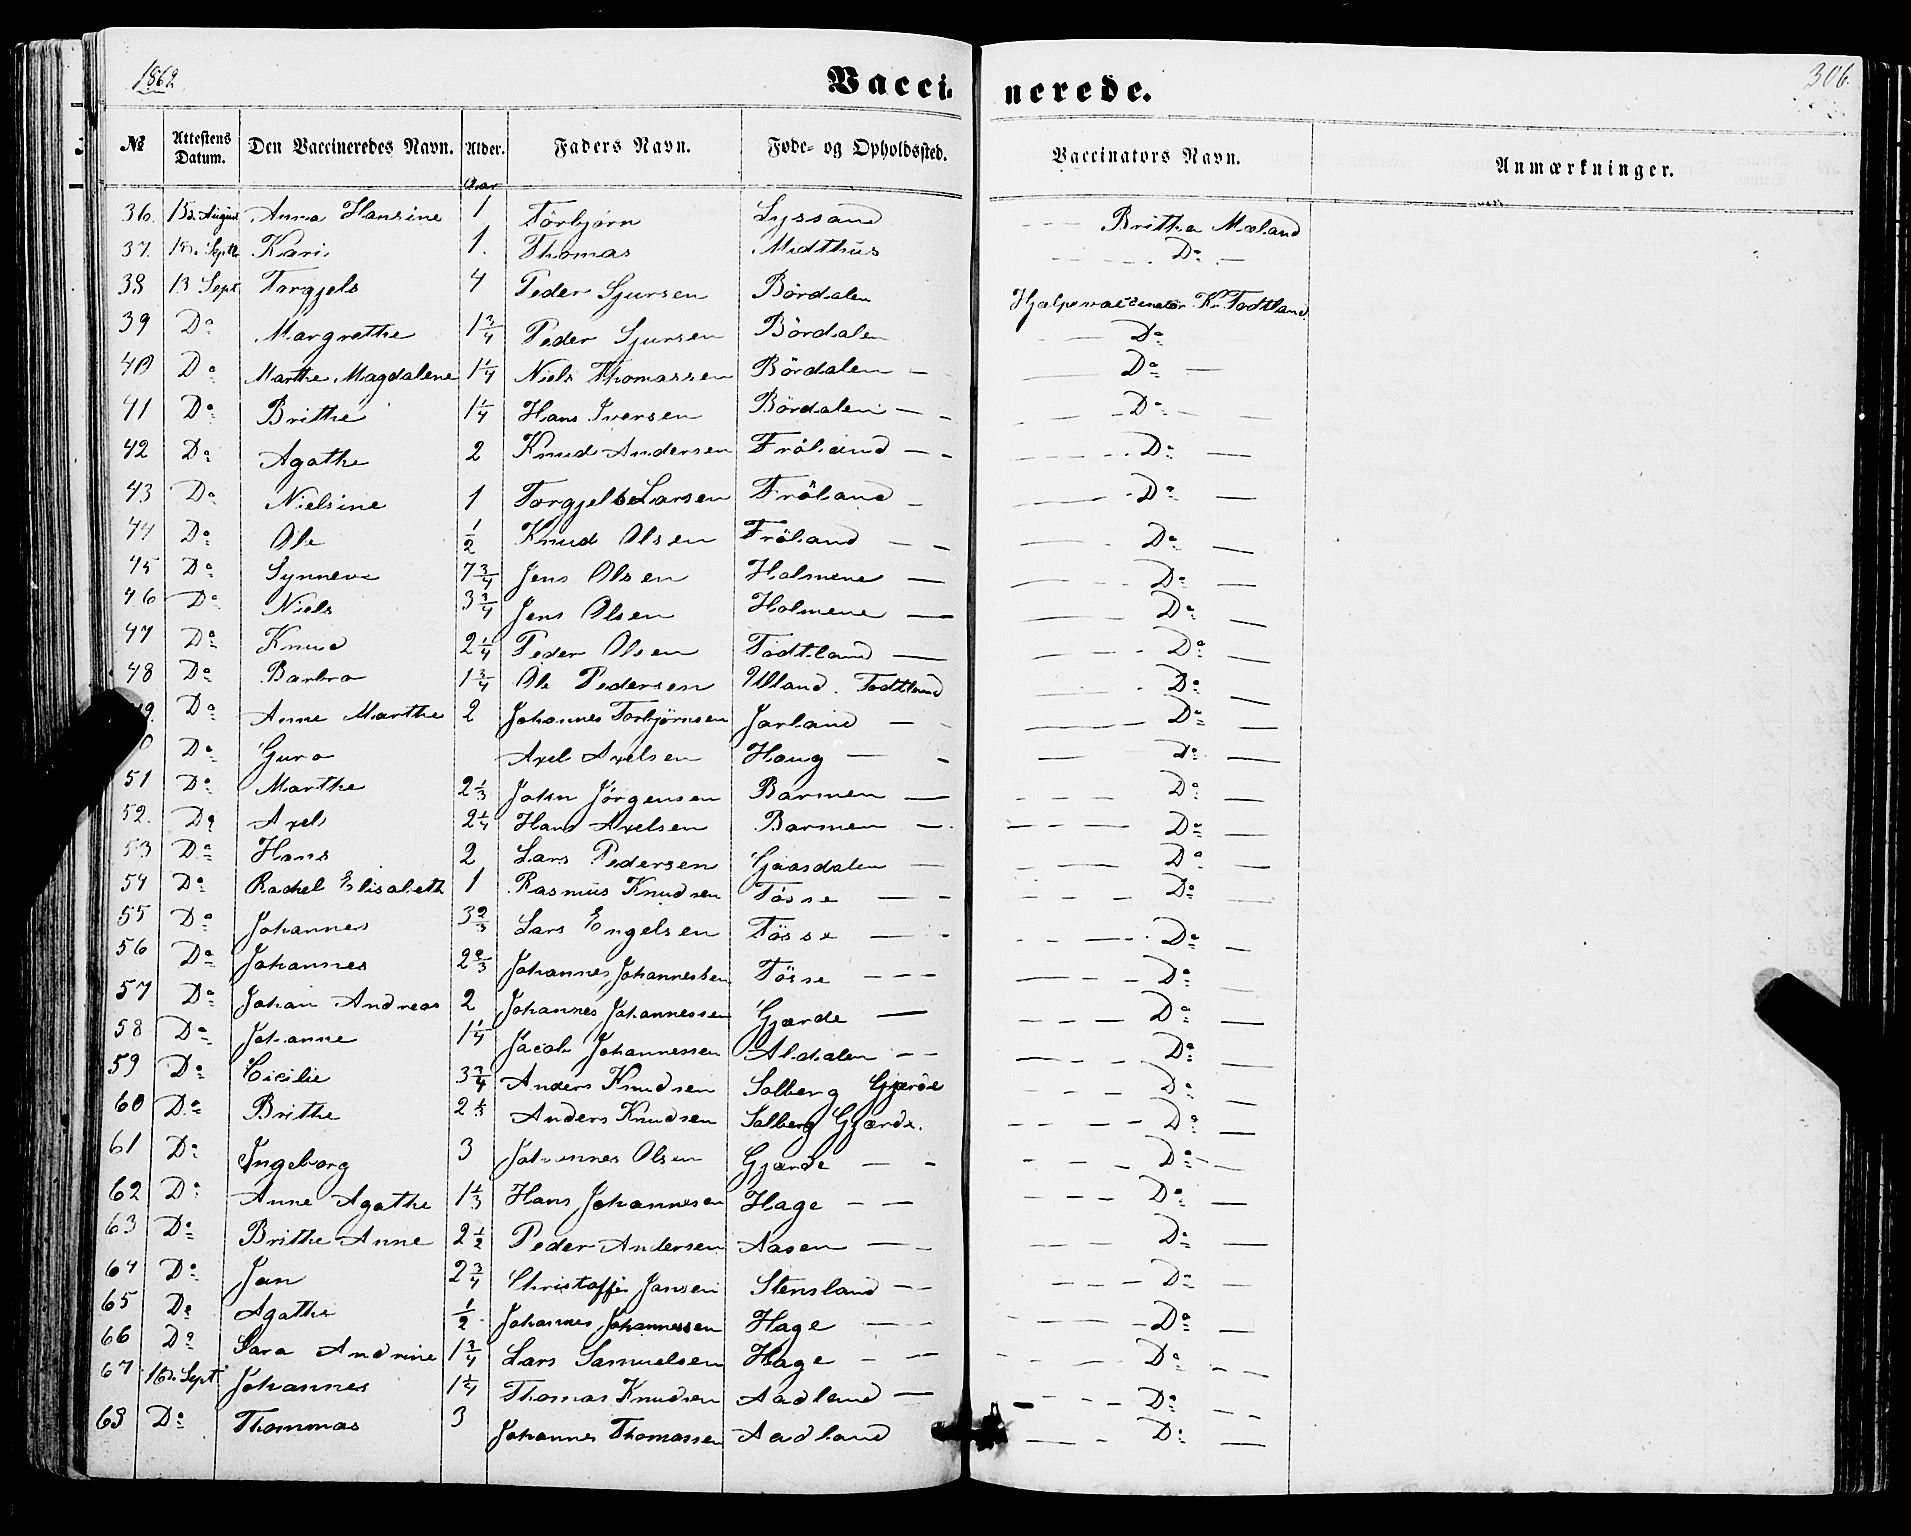 1862 Vaccinerede. 306.
№ Attestens Datum. Den Vaccineredes Navn. Alder. Faders Navn. Føde- og Opholdssted. Vaccinators Navn. Anmærkninger.
Aar
36. August Anna Hansine 1 Törbjörn Lyssand Britha Mæland
37. Septb Kari 1. Thomas Midthus Do
38 13 Sept Torgjels 4 Peder Sjursen Bördalen Hjelpevaccinatør K. Todtland.
39 Do Margrethe 1 3/4 Peder Sjursen Bördalen Do
40 Do Marthe Magdalene 1 1/4 Niels Thomassen Bördalen Do
41 Do Brithe 1 1/4 Hans Iversen Bördalen Do
42 Do Agathe 2 Knud Andersen Fröland Do
43 Do Nielsine 1 Larsen Fröland Do
44 Do Ole 1/2 Knud Olsen Fröland Do
45 Do Synneve 7 3/4 Jens Olsen Holmene Do
46 Do Niels 3 3/4 Jens Olsen Holmene Do
47 Do Knud 2 1/4 Peder Olsen Todtland Do
48 Do Barbro 1 3/4 Ole Pedersen Ulland. Todtland Do
9. Do Anne Marthe 2 Johannes Torbjörnsen Jarland Do
0 Do Guro Axel Axelsen Haug Do
51 Do Marthe 2 1/3 John Jörgensen Barmen Do
52. Do Axel 2 1/4 Hans Axelsen Barmen Do
53 Do Hans 2 Lars Pedersen Gaasdalen Do
54 Do Rachel Elisabeth 1 Rasmus Knudsen Tösse Do
55 Do Johannes 3 2/3 Lars Engelsen Tösse Do
56 Do Johannes 2 2/3 Johannes Johannessen Tösse Do
57 Do Johan Andreas 2 Johannes Johannessen Gjærde Do
58 Do Johanne 1 1/4 Jacob Johannessen Aldalen Do
59 Do Cicilie 3 3/4 Anders Knudsen Solberg Gjærde Do
60 Do Brithe 2 1/3 Anders Knudsen Solberg Gjærde. Do
61 Do Ingeborg 3 Johannes Olsen Gjærde Do
62 Do Anne Agathe 1 1/3 Hans Johannesen Hage Do
63 Do Brithe Anne 2 1/2 Peder Andersen Aasen Do
64 Do Jan 2 3/4 Christoffer Jansen Stensland Do
65 Do Agathe 1/2 Johannes Johannessen Hage Do
66 Do Sara Andrine 1 3/4 Lars Samuelsen Hage Do
67 16d. Sept Johannes 1 1/4 Thomas Knudsen Aadland Do
68 Do Thommas 3 Johannes Thomassen Aadland Do